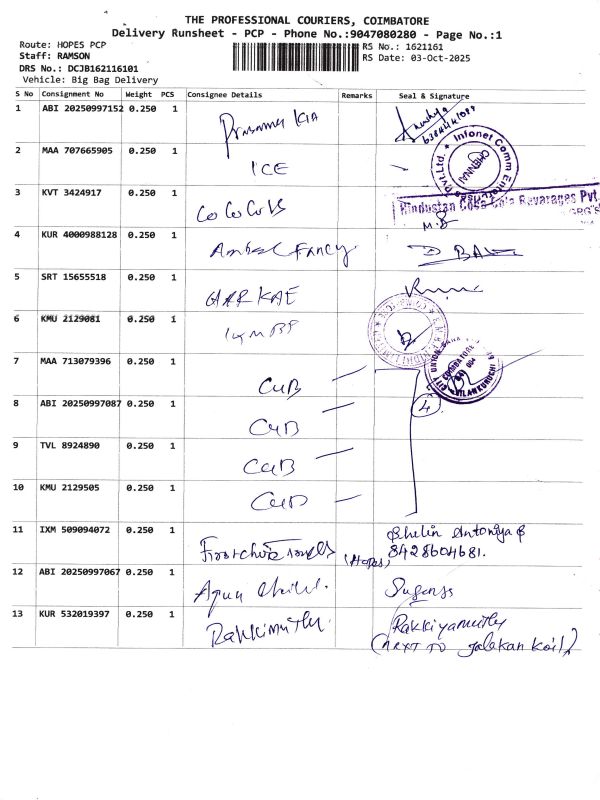 THE PROFESSIONAL COURIERS, COIMBATORE
Delivery Runsheet - PCP - Phone No.:9047080280 - Page No.:1
Route: HOPES PCP
Staff: RAMSON
DRS No.: DCJB162116101
Vehicle: Big Bag Delivery
RS No.: 1621161
RS Date: 03-Oct-2025
S No Consignment No Weight PCS Consignee Details Remarks Seal & Signature
1 ABI 20250997152 0.250 1 Prasanna KIA
2 MAA 707665905 0.250 1 ICE
Infonet Comm
CHENNAI
Pvt.Ltd.
3 KVT 3424917 0.250 1
Hindustan Coca Cola Bevarages Pvt.
4 KUR 4000988128 0.250 1 Ambal Fancy
5 SRT 15655518 0.250 1
6 KMU 2129081 0.250 1
7 MAA 713079396 0.250 1 CUB
CITY UNION BANK
COIMBATORE
VILANKURICHI
8 ABI 20250997087 0.250 1 CUB 4
9 TVL 8924890 0.250 1 CUB
10 KMU 2129505 0.250 1 CUB
11 IXM 509094072 0.250 1 (Hopes)
8428604681.
12 ABI 20250997067 0.250 1
13 KUR 532019397 0.250 1 Rakkimuthu Rakkiyamuthu
(NEXT TO